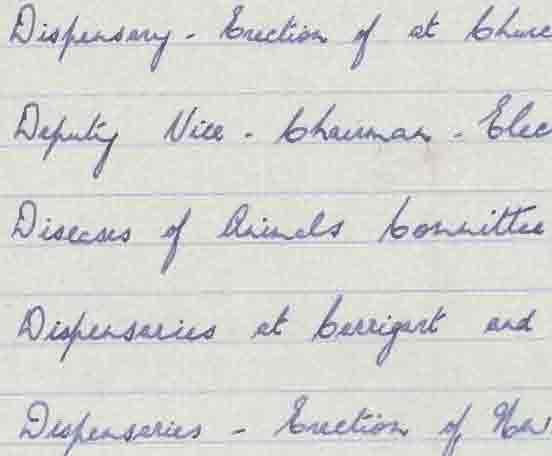 Dispensary - Erection of at Churc
Deputy Vice - Chairman - Elec
Diseases of Animals Committee
Dispensaries at Carrigart and
Dispensaries - Erection of New